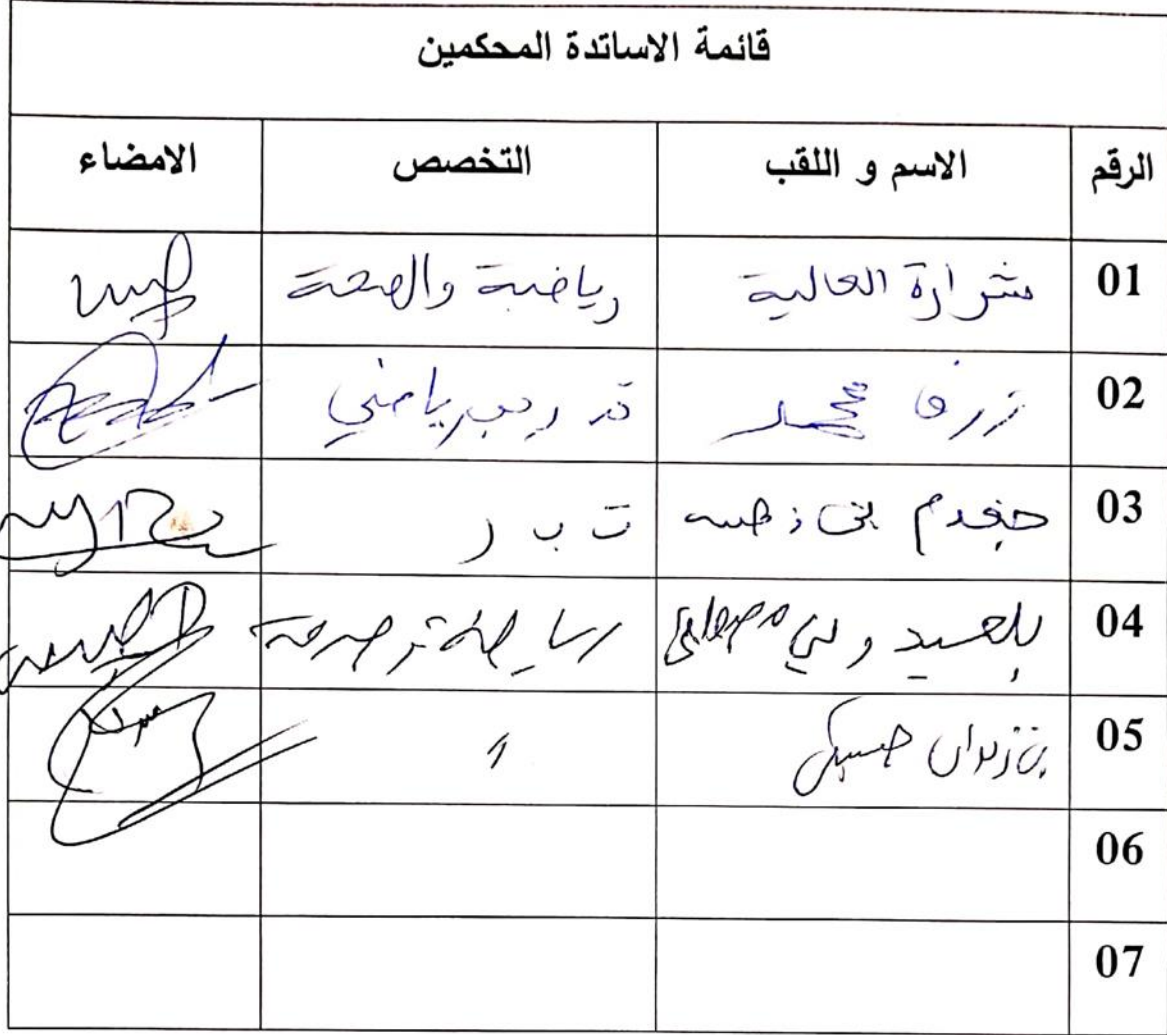 قائمة الاساتدة المحكمين
الرقم الاسم و اللقب التخصص الامضاء
01 شرارة العالية رياضة والصحة
02 زرف محمد تدريب رياضي
03 مقدم بن ذهيبة ت ب ر
04 بلعيدوني مصطفى
05 بن زيدان حسين //
06
07